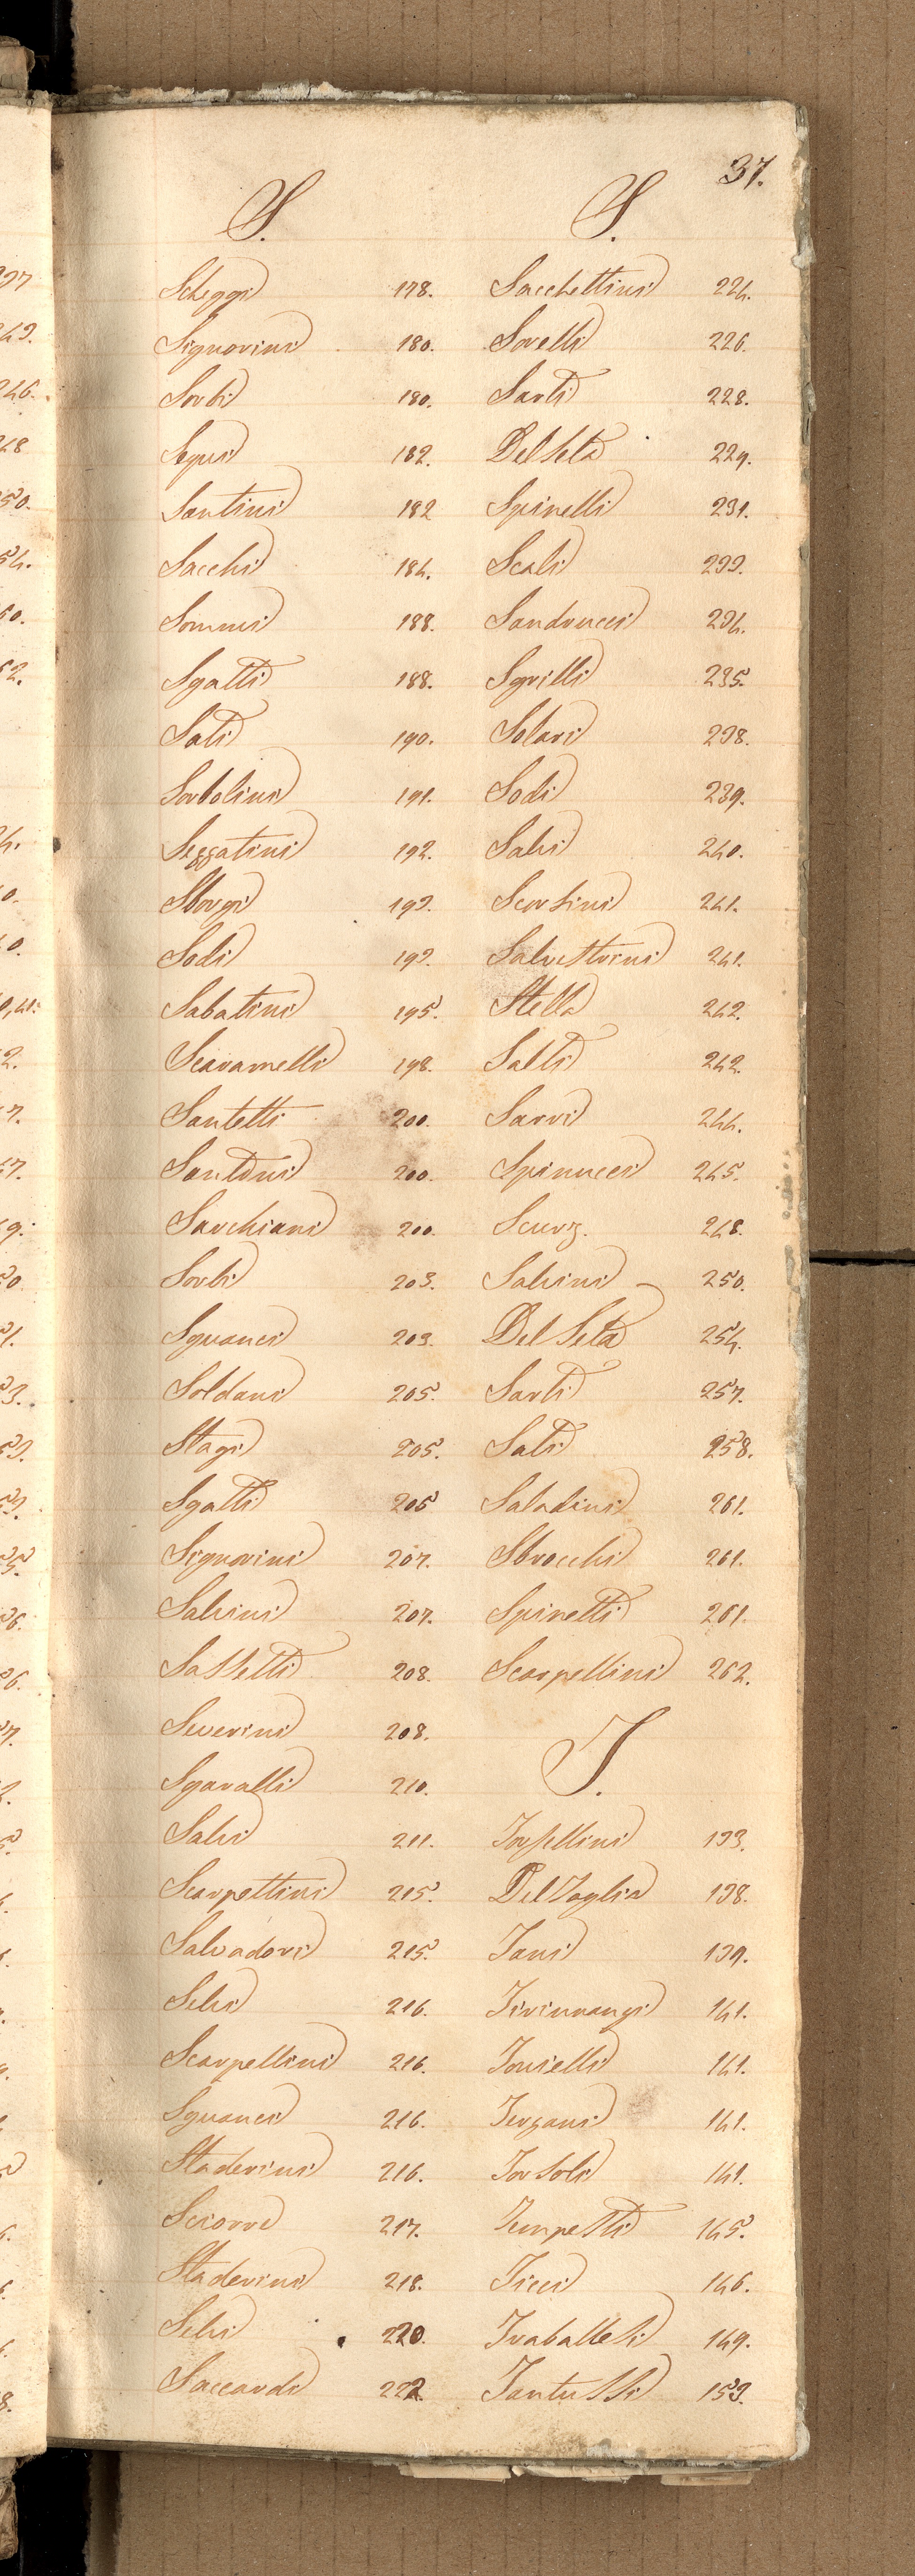 37.
S.
Scheggi 178.
Signorini 180.
Sorbi 180.
Segui 182.
Santini 182
Sacchi 184.
Sommi 188.
Sgatti 188.
Sati 190.
Sorbolini 191.
Seggatini 192.
Sborgi 193.
Sodi 193.
Sabatini 195.
Scaramelli 198.
Santetti 200.
Santoni 200.
Sarchiani 200.
Sorbi 203.
Sguanci 203.
Soldani 205.
Stagi 205.
Sgatti 205
Signorini 207.
Salvini 207.
Sassetti 208.
Severini 208.
Sgaralli 210.
Salvi 211.
Scarpettini 215.
Salvadori 215.
Selvi 216.
Scarpellini 216.
Sguanci 216.
Staderini 216.
Sciorre 217.
Staderini 218.
Selvi 220.
Saccardi 222.
S.
Sacchettini 224.
Sorelli 226.
Sarti 228.
Del Seta 229.
Spinelli 231.
Scali 233.
Sanducci 234.
Sgrilli 235.
Solari 238.
Sodi 239.
Salvi 240.
Scorsini 241.
Salvestrini 241.
Stella 242.
Salti 242.
Sarri 244.
Spinucci 245.
248.
Salvini 250.
Del Seta 254.
Sarti 257.
Sati 258.
Saladini 261.
Sbrocchi 261.
Spinetti 261.
Scarpellini 262.
T.
Torsellini 133.
Del Taglia 138.
Tani 139.
Tirinnanzi 141.
Tonielli 141.
Terzani 141.
Torsoli 141.
Tempesti 145.
Ticci 146.
Traballesi 149.
Tantussi 153.